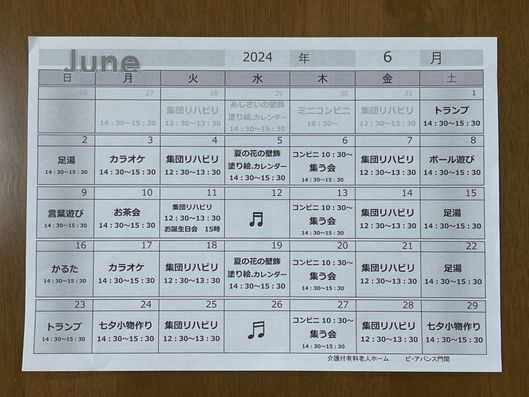 June 2024 年 6 月
日 月 火 水 木 金 土
26 27 28 29 30 31 1
集団リハビリ あじさいの壁飾 ミニコンビニ 集団リハビリ トランプ
塗り絵.カレンダー
14：30～15：30 12：30～13：30 14：30～15：30 10：30～ 12：30～13：30 14：30～15：30
2 3 4 5 6 7 8
足湯 カラオケ 集団リハビリ 夏の花の壁飾 コンビニ 10：30～ 集団リハビリ ボール遊び
塗り絵.カレンダー 集う会
14：30～15：30 14：30～15：30 12：30～13：30 14：30～15：30 14：30～15：30 12：30～13：30 14：30～15：30
9 10 11 12 13 14 15
言葉遊び お茶会 集団リハビリ コンビニ 10：30～ 集団リハビリ 足湯
12：30～13：30 集う会
14：30～15：30 14：30～15：30 お誕生日会 15時 14：30～15：30 12：30～13：30 14：30～15：30
16 17 18 19 20 21 22
かるた カラオケ 集団リハビリ 夏の花の壁飾 コンビニ 10：30～ 集団リハビリ 足湯
塗り絵.カレンダー 集う会
14：30～15：30 14：30～15：30 12：30～13：30 14：30～15：30 14：30～15：30 12：30～13：30 14：30～15：30
23 24 25 26 27 28 29
トランプ 七夕小物作り 集団リハビリ コンビニ 10：30～ 集団リハビリ 七夕小物作り
集う会
14：30～15：30 14：30～15：30 12：30～13：30 14：30～15：30 12：30～13：30 14：30～15：30
介護付有料老人ホーム ビ・アバンス門間